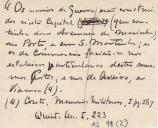 Os navios de Guerra eram construi-
dos nesta Capital, que con-
tinha dos Arsenais da Marinha,
no Porto e em S. Martinho; e os
do Commercio faziam-se nos
estaleiros particulares destes mes-
mos Portos, e nos de Aveiro, e
Vianna (4).
(4) Conto, Memorias Militares, I pg. 287
Quint. An. I, 223